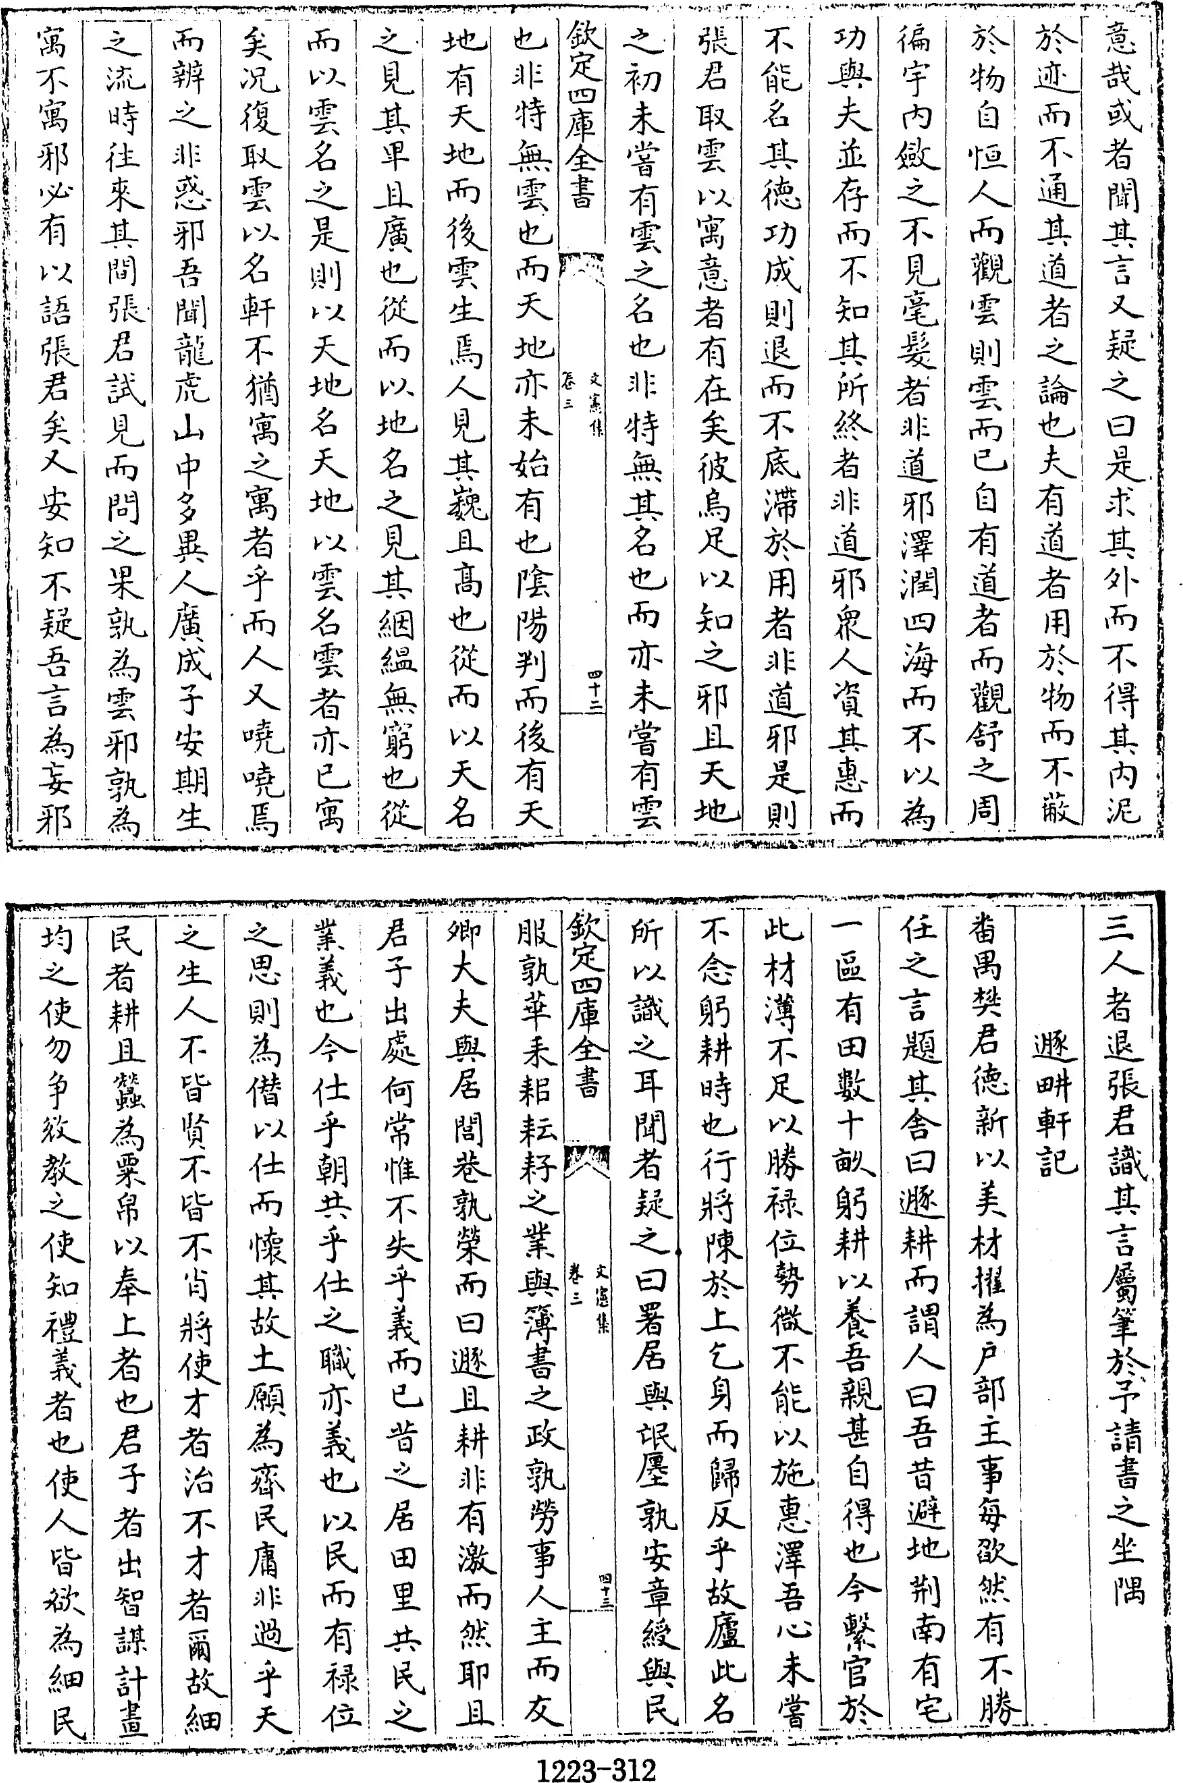 意哉或者聞其言又疑之曰是求其外而不得其内泥
於迹而不通其道者之論也夫有道者用於物而不蔽
於物自恒人而觀雲則雲而已自有道者而觀舒之周
徧宇内斂之不見毫髮者非道邪澤潤四海而不以為
功與夫並存而不知其所終者非道邪衆人資其惠而
不能名其徳功成則退而不底滯於用者非道邪是則
張君取雲以寓意者有在矣彼烏足以知之邪且天地
之初未嘗有雲之名也非特無其名也而亦未嘗有雲
欽定四庫全書
文憲集
卷三
四十二
也非特無雲也而天地亦未始有也陰陽判而後有天
地有天地而後雲生焉人見其巍且髙也從而以天名
之見其卑且廣也從而以地名之見其絪緼無窮也從
而以雲名之是則以天地名天地以雲名雲者亦已寓
矣況復取雲以名軒不猶寓之寓者乎而人又嘵嘵焉
而辨之非惑邪吾聞龍虎山中多異人廣成子安期生
之流時往來其間張君試見而問之果孰為雲邪孰為
寓不寓邪必有以語張君矣又安知不疑吾言為妄邪
三人者退張君識其言屬筆於予請書之坐隅
遯畊軒記
畨禺樊君徳新以美材擢為户部主事每欿然有不勝
任之言題其舎曰遯耕而謂人曰吾昔避地荆南有宅
一區有田數十畝躬耕以養吾親甚自得也今繫官於
此材薄不足以勝禄位勢微不能以施惠澤吾心未嘗
不念躬耕時也行將陳於上乞身而歸反乎故廬此名
所以識之耳聞者疑之曰署居與氓廛孰安章綬與民
欽定四庫全書
文憲集
卷三
四十三
服孰華耒耜耘耔之業與簿書之政孰勞事人主而友
卿大夫與居閭巷孰榮而曰遯且耕非有激而然耶且
君子出處何常惟不失乎義而已昔之居田里共民之
業義也今仕乎朝共乎仕之職亦義也以民而有禄位
之思則為僭以仕而懷其故土願為齊民庸非過乎天
之生人不皆賢不皆不肖將使才者治不才者爾故細
民者耕且蠶為粟帛以奉上者也君子者出智謀計畫
均之使勿争效教之使知禮義者也使人皆欲為細民
1223-312